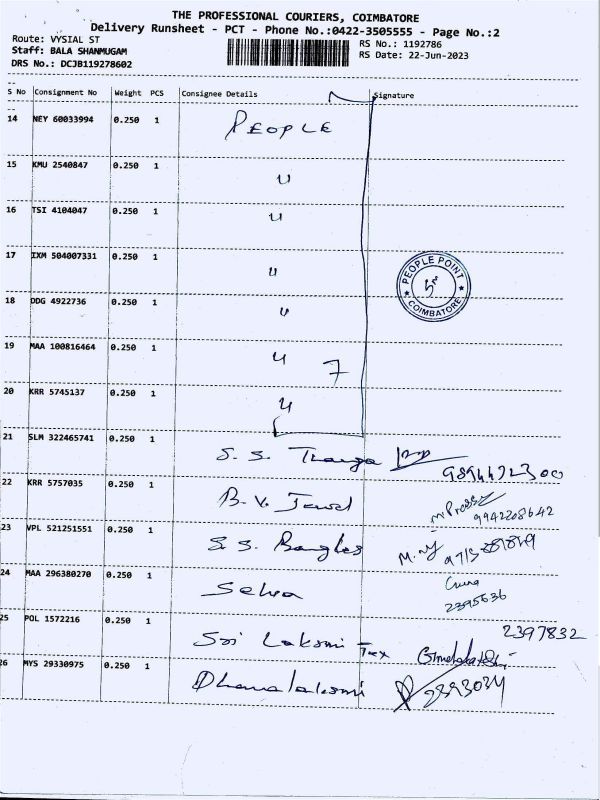 THE PROFESSIONAL COURIERS, COIMBATORE
Delivery Runsheet - PCT - Phone No.:0422-3505555 - Page No.:2
Route: VYSIAL ST RS No.: 1192786
Staff: BALA SHANMUGAM RS Date: 22-Jun-2023
DRS No.: DCJB119278602
S No Consignment No Weight PCS Consignee Details Signature
14 NEY 60033994 0.250 1 PEOPLE
15 KMU 2540847 0.250 1 u
16 TSI 4104047 0.250 1 u
17 IXM 504007331 0.250 1 u
PEOPLE POINT
COIMBATORE
18 DDG 4922736 0.250 1 u
19 MAA 100816464 0.250 1 u 7
20 KRR 5745137 0.250 1 u
21 SLM 322465741 0.250 1 S. S. Thanga
22 KRR 5757035 0.250 1 B. V. Jewel 9942208642
23 VPL 521251551 0.250 1 S. S. Bangles
24 MAA 296380270 0.250 1 Selva 2395636
25 POL 1572216 0.250 1 Sri Laksmi Tex 2397832
26 MYS 29330975 0.250 1 Dhanalaksmi 2393034